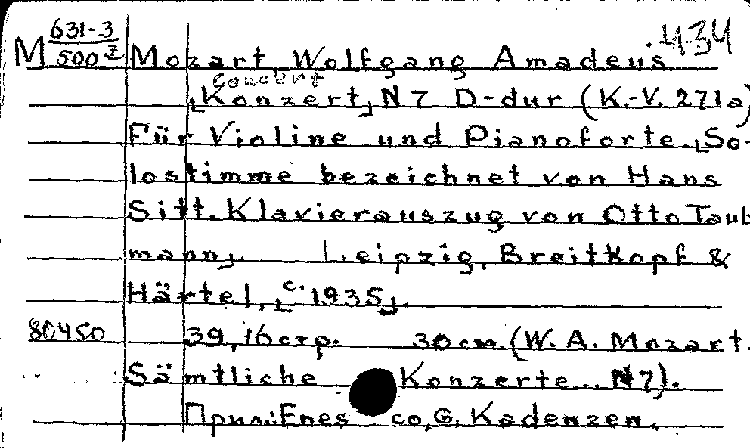 M 631-3
500 z
434
Mozart, Wolfgang Amadeus.
Concert
[Konzert] N7 D-dur (K.-V. 271a)
Für Violine und Pianoforte. [So-
lostimme bezeichnet von Hans
Sitt. Klavierauszug von Otto Taub
mann]. Leipzig, Breitkopf &
Härtel, [c. 1935].
80450
39, 16 стр. 30 см. (W. A. Mozart.
Sämtliche Konzerte... N7).
Прил.: Kadenzen.